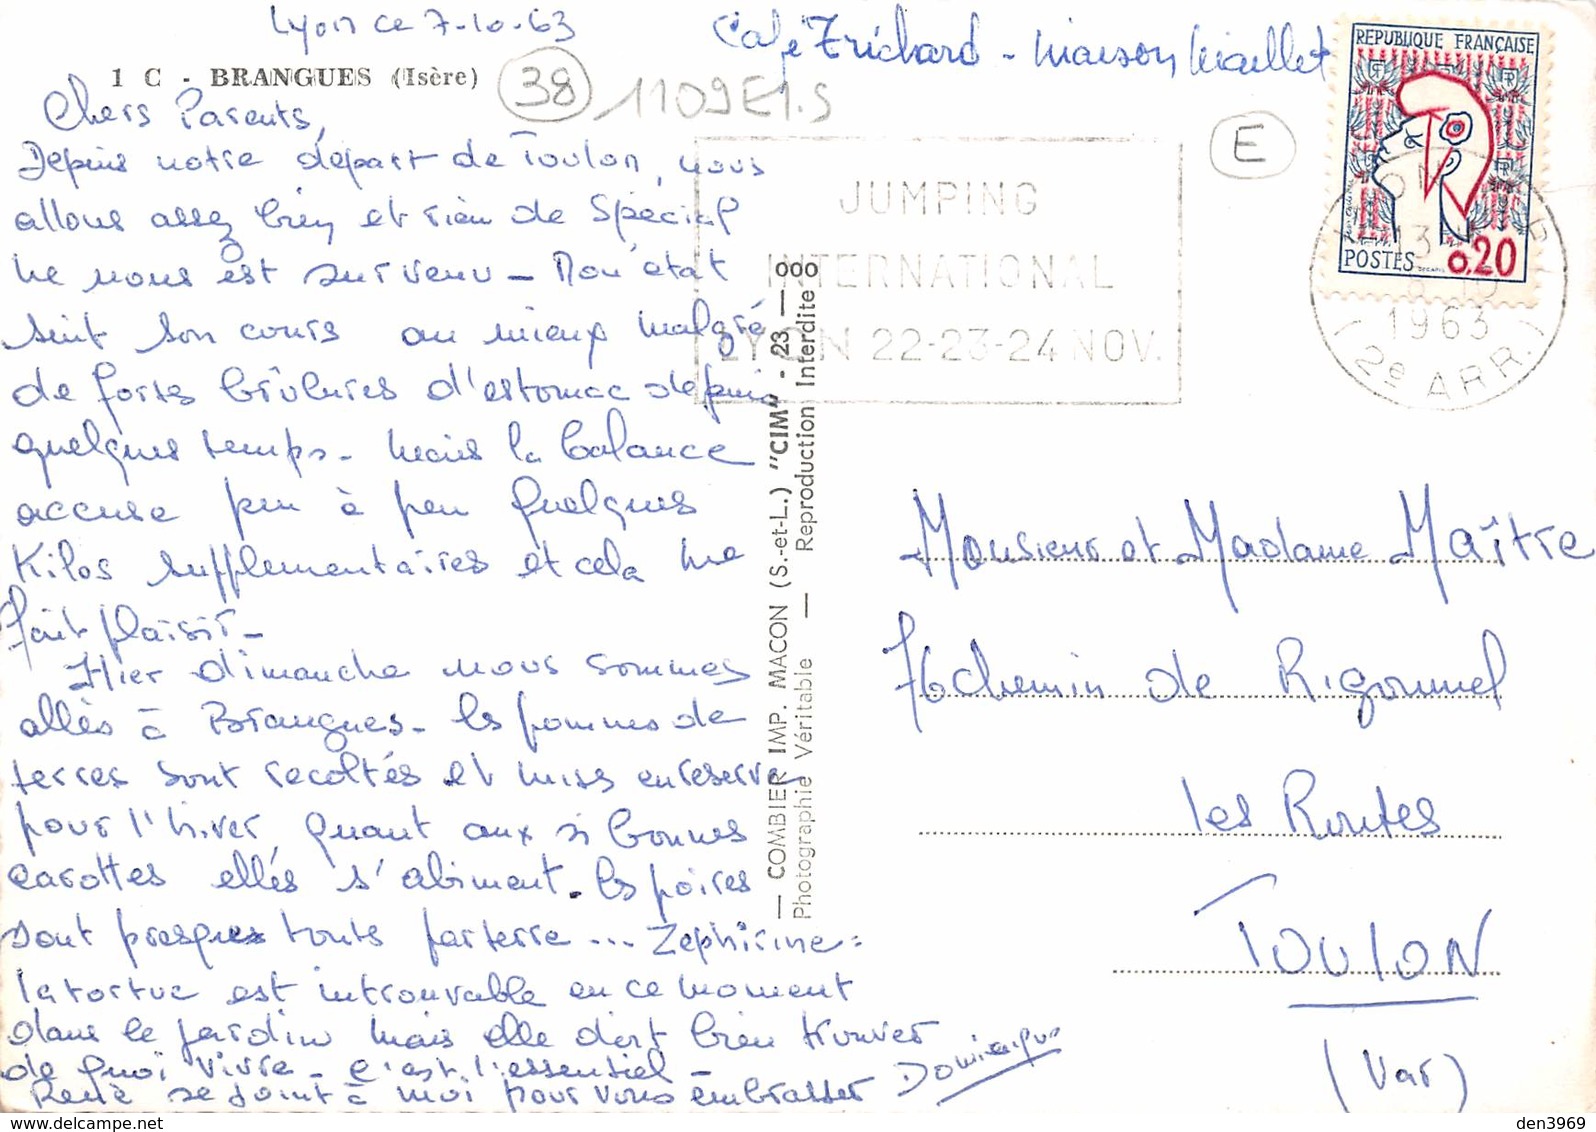 Lyon ce 7-10-63
Café Trichard - Maison Maillet
1 C - BRANGUES (Isère)
38
1109E1.S
E
REPUBLIQUE FRANÇAISE
POSTES 0,20
JUMPING
INTERNATIONAL
LYON 22-23-24 NOV.
1963
2e ARR.
Chers Parents,
Depuis notre départ de Toulon, nous
allons assez bien et rien de Spécial
ne nous est survenu - Mon état
suit son cours au mieux malgré
de fortes brûlures d'estomac depuis
quelques temps - Mais la balance
accuse peu à peu quelques
Kilos supplémentaires et cela me
fait plaisir -
Hier dimanche nous sommes
allés à Brangues - les pommes de
terres sont recoltés et mises en reserve
pour l'hiver, quant aux si bonnes
carottes elles s'abiment - les poires
sont presques touts parterre ... Zéphirine =
la tortue est introuvable en ce moment
dans le jardin mais elle doit bien trouver
de quoi vivre - c'est l'essentiel -
René se joint à moi pour vous embrasser Dominique
— COMBIER IMP. MACON (S.-et-L.) "CIM" - 23 — ooo
Photographie Véritable — Reproduction Interdite
Monsieur et Madame Maître
76 chemin de Rigoumel
les Routes
TOULON
(Var)
den3969